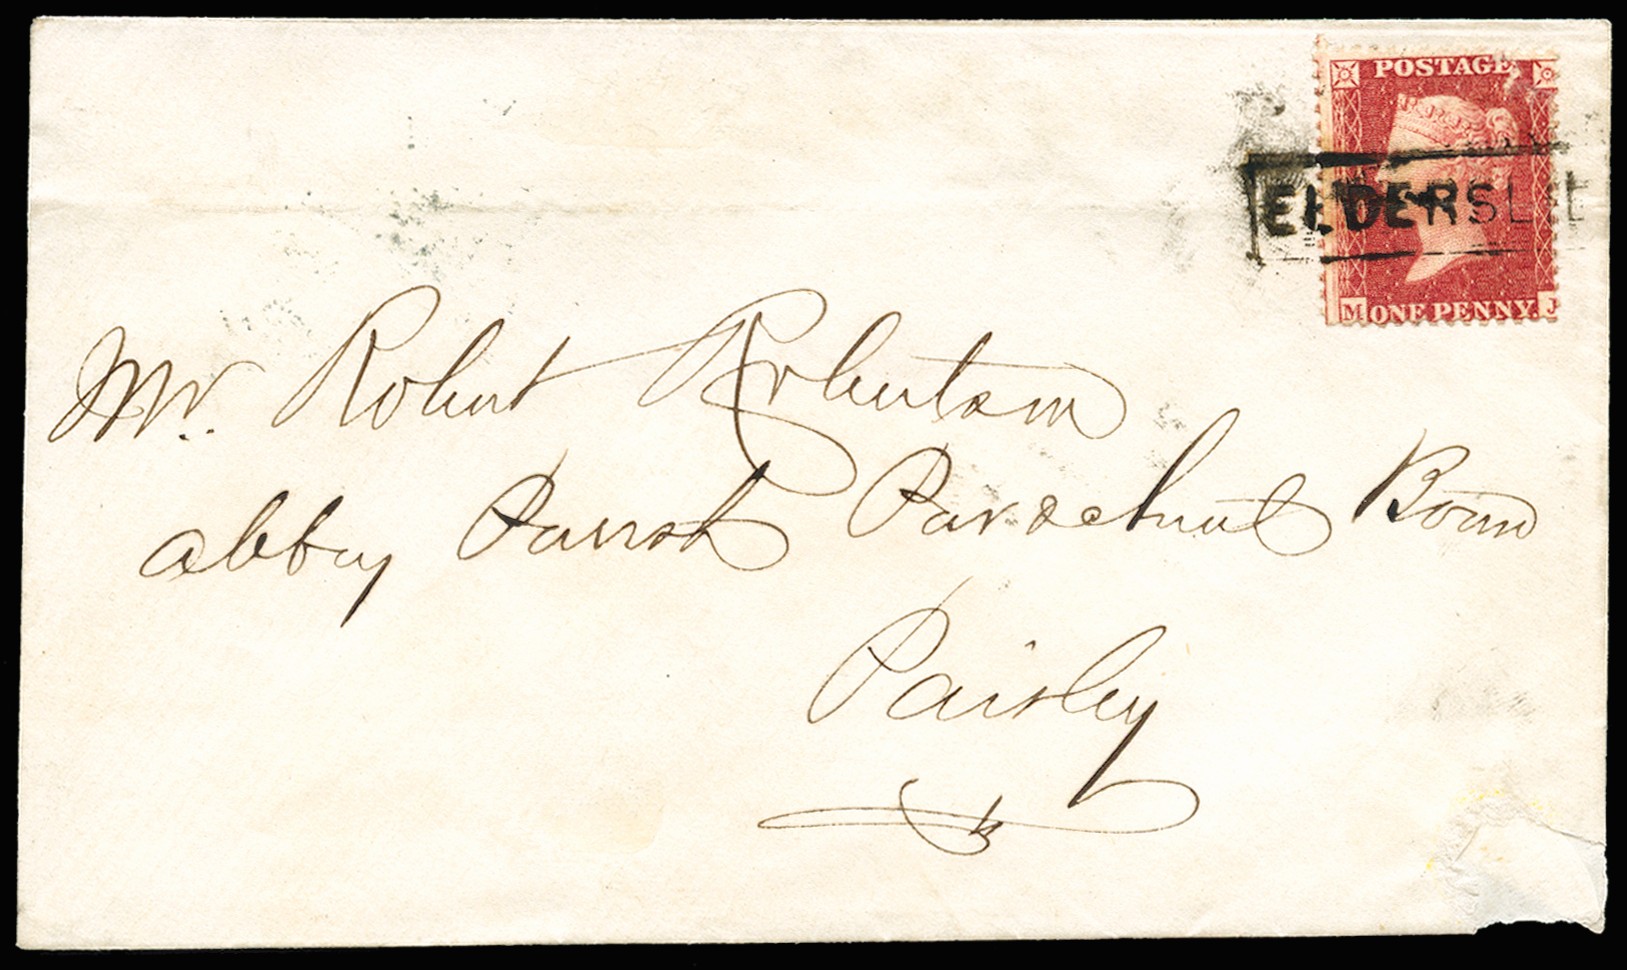 POSTAGE
ELDERSLIE
M ONE PENNY. J
Mr. Robert Robertson
Abbey Parish Parochial Board
Paisley